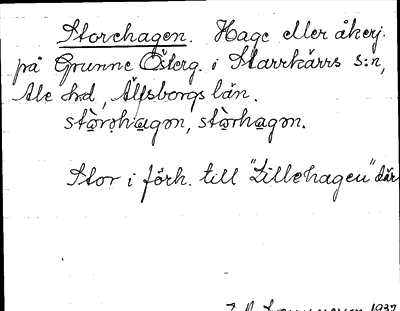 Storehagen. Hage eller åkerj.
på Grunne Österg. i Starrkärrs s:n,
Ale hd, Älfsborgs län.
stòrəhagən, stòrhagən.
Stor i förh. till "Lillehagen" där
1937